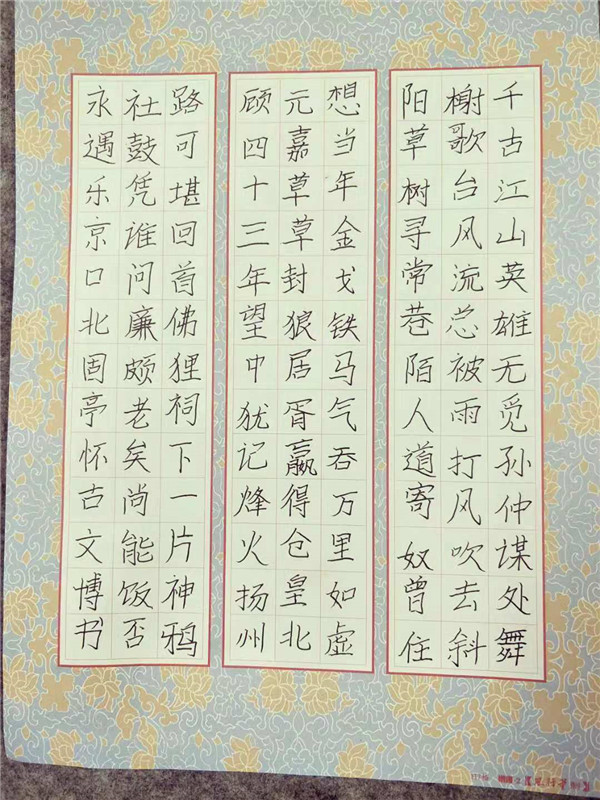 千古江山英雄无觅孙仲谋处舞
榭歌台风流总被雨打风吹去斜
阳草树寻常巷陌人道寄奴曾住
想当年金戈铁马气吞万里如虚
元嘉草草封狼居胥赢得仓皇北
顾四十三年望中犹记烽火扬州
路可堪回首佛狸祠下一片神鸦
社鼓凭谁问廉颇老矣尚能饭否
永遇乐京口北固亭怀古文博书